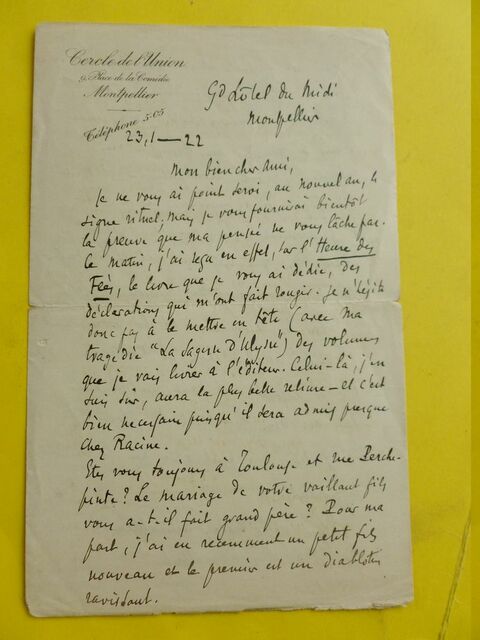 Cercle de l'Union
9, Place de la Comédie
Montpellier
Téléphone 5.05
Gd Hôtel du Midi
Montpellier
23, 1 — 22
Mon bien cher ami,
Je ne vous ai point servi, au nouvel an, le
signe rituel, mais je vous fournirai bientôt
la preuve que ma pensée ne vous lâche pas.
Ce matin, j'ai reçu en effet, sur l'Heure des
Fées, le livre que je vous ai dédié, des
déclarations qui m'ont fait rougir. Je n'hésite
donc pas à le mettre en tête (avec ma
tragédie "La Sagesse d'Ulysse") des volumes
que je vais livrer à l'éditeur. Celui-là, j'en
suis sûr, aura la plus belle reliure — et c'est
bien nécessaire puisqu'il sera admis presque
chez Racine.
Etes vous toujours à Toulouse et rue Perche-
pinte? Le mariage de votre vaillant fils
vous a-t-il fait grand père? Pour ma
part, j'ai eu récemment un petit fils
nouveau et le premier est un diablotin
ravissant.